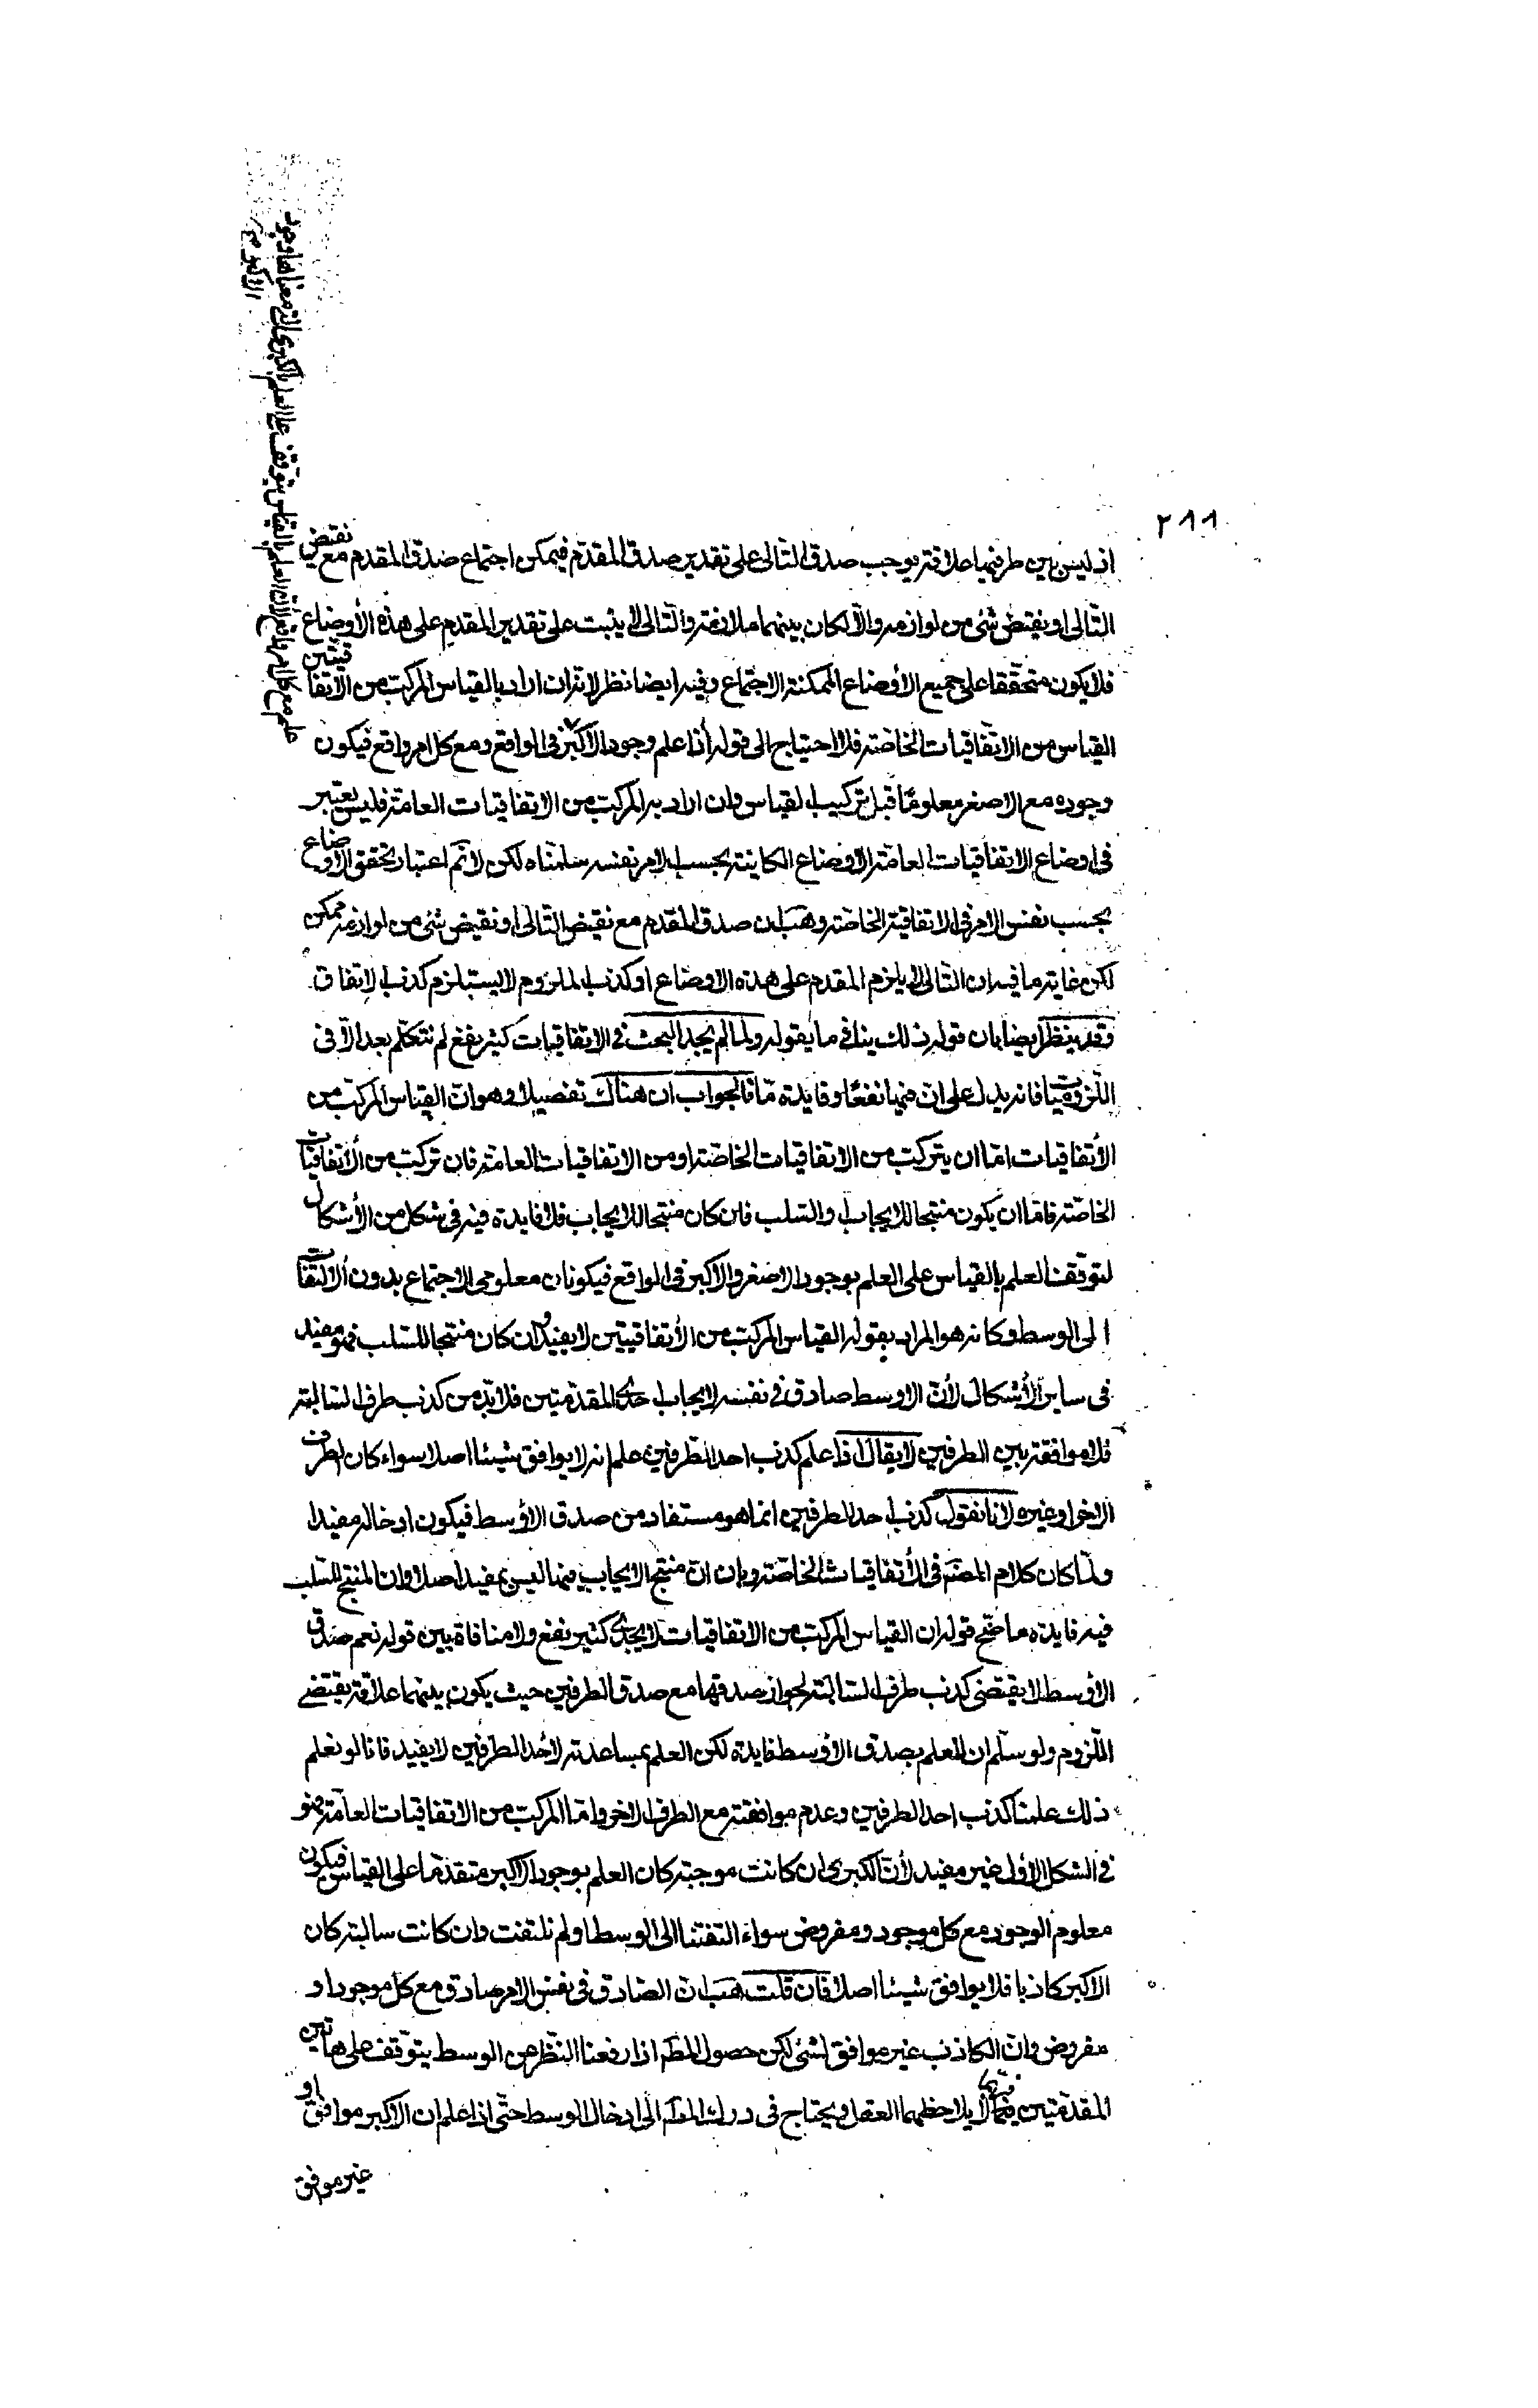 ٢٨٨
اذ ليس بين طرفيها علاقة يوجب صدق التالى على تقدير صدق المقدم فيمكن اجتماع صدق المقدم مع نقيض
التالى او نقيض شئ من لوازمه والا لكان بينهما ملازمة والتالى لا يثبت على تقدير المقدم على هذه الأوضاع
فلا يكون متحققا على جميع الأوضاع الممكنة الاجتماع وفيه ايضا نظر لانه ان اراد بالقياس المركب من الاتفاقيتين
القياس من الاتفاقيات الخاصة فلا احتياج الى قوله اذا علم وجود الأكبر فى الواقع ومع كل امر واقع فيكون
وجوده مع الاصغر معلوما قبل تركيب القياس وان اراد به المركب من الاتفاقيات العامة فليس يعتبر
فى اوضاع الاتفاقيات العامة الاوضاع الكاينة بحسب الامر نفسه سلمناه لكن لا نم اعتبار تحقق الأوضاع
بحسب نفس الامر فى الاتفاقية الخاصة وهب ان صدق المقدم مع نقيض التالى او نقيض شئ من لوازمه ممكن
لكن غاية ما فيه ان التالى لا يلزم المقدم على هذه الاوضاع او كذب الملزوم لا يستلزم كذب الاتفاق
وقد ينظر ايضا بان قوله ذلك ينافى ما يقوله ولما لم يجد البحث فى الاتفاقيات كثير نفع لم نتكلم بعد الا فى
اللزوميات فانه يدل على ان فيها نفعا وفايدة ما فالجواب ان هناك تفصيلا وهو ان القياس المركب من
الأتفاقيات اما ان يتركب من الاتفاقيات الخاصة او من الاتفاقيات العامة فان تركب من الأتفاقيات
الخاصة فاما ان يكون منتجا للايجاب او السلب فان كان منتجا للايجاب فلا فايدة فيه فى شكل من الأشكال
لتوقف العلم بالقياس على العلم بوجود الاصغر والاكبر فى الواقع فيكونان معلومى الاجتماع بدون الالتفات
الى الوسط وكانه هو المراد بقوله القياس المركب من الأتفاقيتين لا يفيد وان كان منتجا للسلب فهو مفيد
فى ساير الأشكال لأن الاوسط صادق فى نفسه لايجاب احدى المقدمتين فلا بد من كذب طرف السالبة
فلا موافقة بين الطرفين لا يقال اذا علم كذب احد الطرفين علم انه لا يوافق شيئا اصلا سواء كان الطرف
الاخر او غيره لانا نقول كذب احد الطرفين انما هو مستفاد من صدق الأوسط فيكون ادخاله مفيدا
ولما كان كلام المصنف فى الأتفاقيات الخاصة وبان ان منتج الايجاب فيها ليس بمفيد اصلا وان المنتج للسلب
فيه فايدة ما صح قوله ان القياس المركب من الاتفاقيات لا يجدى كثير نفع ولا منافاة بين قوله نعم صدق
الأوسط لا يقتضى كذب طرف السالبة لجواز صدقها مع صدق الطرفين حيث يكون بينهما علاقة يقتضى
اللزوم ولو سلم ان للعلم بصدق الأوسط فايدة لكن العلم بمساعدته لأحد الطرفين لا يفيد فانا لو نعلم
ذلك علمنا كذب احد الطرفين وعدم موافقته مع الطرف الاخر واما المركب من الاتفاقيات العامة فهو
فى الشكل الأول غير مفيد لأن الكبرى ان كانت موجبة كان العلم بوجود الاكبر متقدما على القياس فيكون
معلوم الوجود مع كل موجود ومفروض سواء التفتنا الى الوسط او لم نلتفت وان كانت سالبة كان
الاكبر كاذبا فلا يوافق شيئا اصلا فان قلت هب ان الصادق فى نفس الامر صادق مع كل موجود او
مفروض وان الكاذب غير موافق لشئ لكن حصول المط اذا رفعنا النظر عن الوسط يتوقف على هاتين
المقدمتين فربما لا يلاحظهما العقل ويحتاج فى درك المط الى ادخال الوسط حتى اذا علم ان الاكبر موافق او
غير موافق
علم مع كل امر واقع لان العلم بالقياس يتوقف على العلم بالكبرى التى معناها وجود
الأكبر